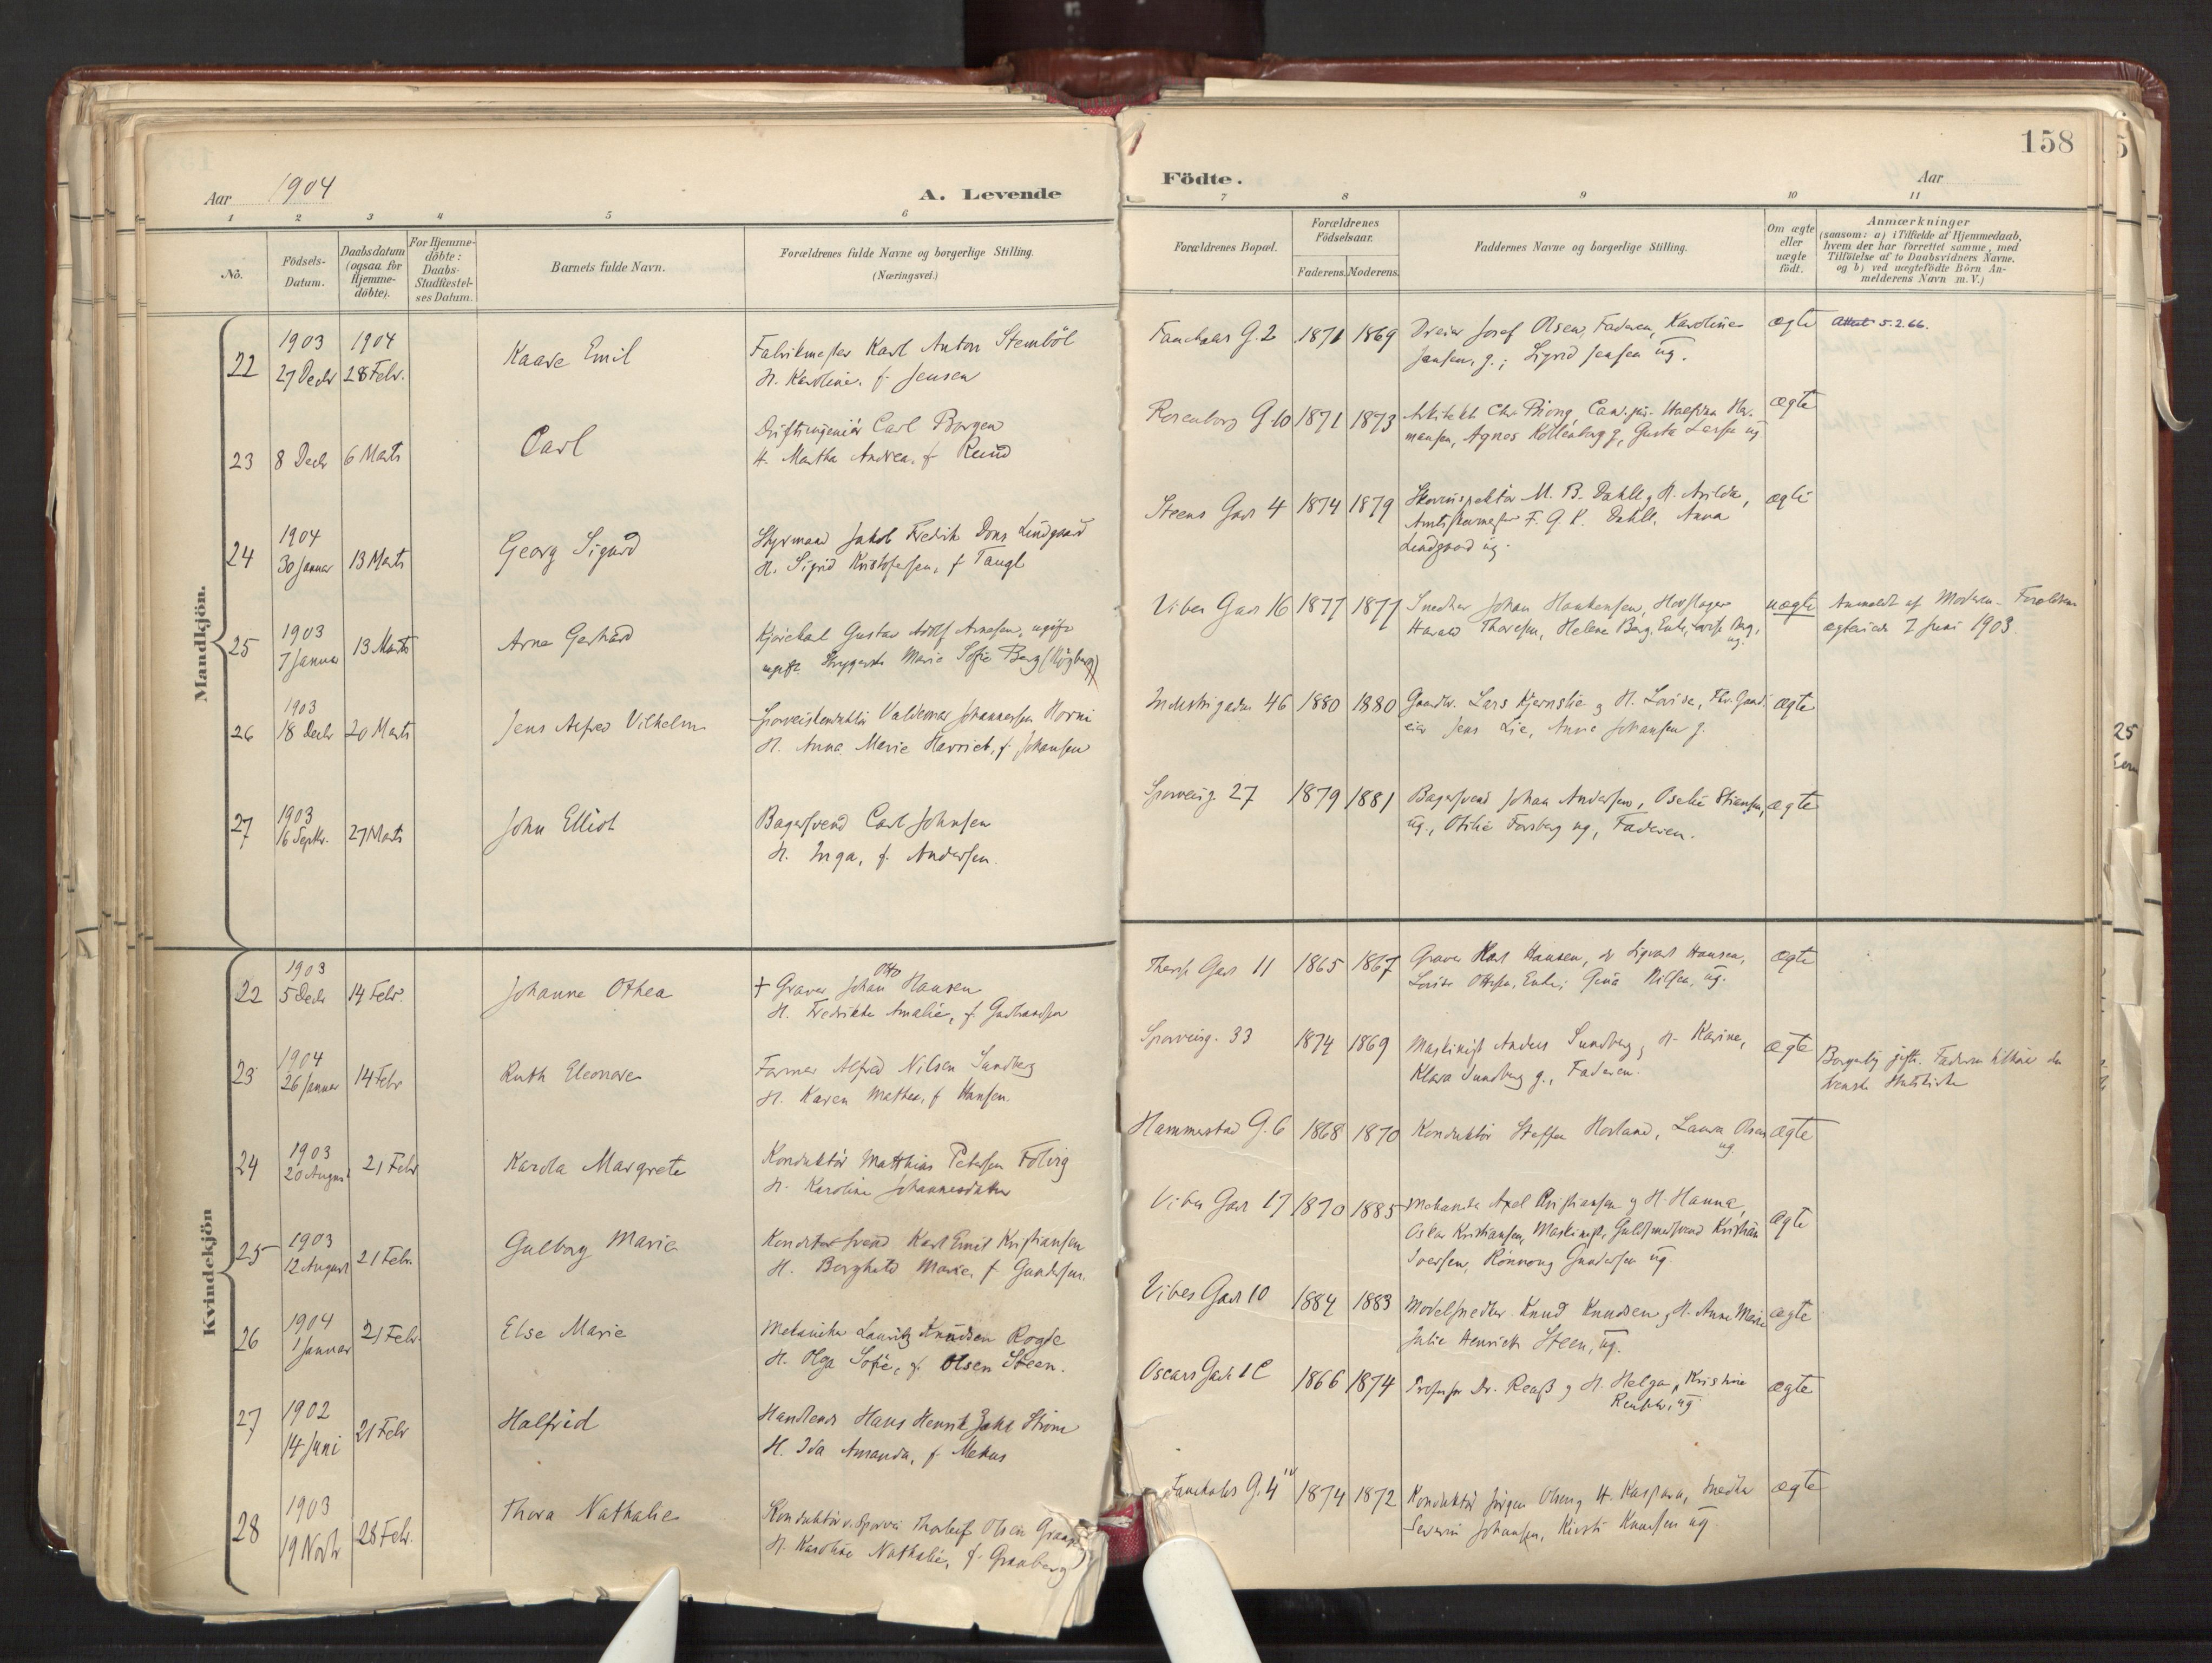 158
Aar 1904
A. Levende
Födte.
Aar
1 2 3 4 5 6 7 8 9 10 11
No.
Födsels-
Datum.
Daabsdatum
(ogsaa for
Hjemme-
döbte).
For Hjemme-
döbte:
Daabs-
Stadfæstel-
ses Datum.
Barnets fulde Navn.
Forældrenes fulde Navne og borgerlige Stilling.
(Næringsvei.)
Forældrenes Bopæl.
Forældrenes
Födselsaar.
Faderens. Moderens.
Faddernes Navne og borgerlige Stilling.
Om ægte
eller
uægte
födt.
Anmærkninger
(saasom: a) i Tilfælde af Hjemmedaab,
hvem der har forrettet samme, med
Tilföielse af to Daabsvidners Navne.
og b) ved uægtefödte Börn An-
melderens Navn m. V.)
Mandkjön.
22
1903
27 Decbr
1904
28 Febr.
Kaare Emil
Fabrikmester Karl Anton Stemböl
H. Karoline. f. Jensen
Fauchals G. 2
1871 1869
Dreier Josef Olsen, Faderen, Karoline
Jansen, g.; Sigrid Jensen ug.
ægte
Attest 5.2.66.
23
8 Decbr
6 Marts
Carl
Driftsingeniör Carl Borgen
H. Martha Andrea. f.
Rosenborg G 10
1871 1873
Arkitekt Chr. Cand. jur. Halfdan Her-
mansen, Agnes g, ug
ægte
24
1904
30 Januar
13 Marts
Georg Sigurd
Styrmand Jakob Fredrik Dons Lindgaard
H. Sigrid Kristofersen, f Tangl
Steens Gad 4
1874 1879
Skovinspektör M. B. Dahll, H. Arilda,
F. G. K. Dahll, Anna
Lindgaard ug.
ægte
25
1903
7 Januar
13 Marts
Arne Gerhard
Gustav Adolf Arnesen, ugift
ugift Marie Sofie Berg (Högberg)
Vibes Gad 16
1877 1877
Snedker Johan Haakensen, Hovslager
Harald Thoresen, Helene Berg, Enke, Berg,
ug.
uægte
Anmeldt af Moderen. Forældrene
ægteviede 7 Juni 1903.
26
1903
18 Decbr
20 Marts
Jens Alfred Vilhelm
Sporveiskonduktör Valdemar Johannesen Horni
H. Anna Marie Harriet, f. Johansen
Industrigaden 46
1880 1880
Lars Kjernslie g H. Lovise,
eier Jens Lie, Anna Johansen g.
ægte
27
1903
16 Septbr.
27 Marts
John Elliot
Bagersvend Carl Johnsen
H. Inga, f. Andersen.
Sporveisg. 27
1879 1881
Bagersvend Johan Andersen, Oselie
ug., Otilie Forsberg ug, Faderen.
ægte
Kvindekjön
22
1903
5 Decbr
14 Febr.
Johanne Othea
Otto
+ Graver Johan Hansen
H. Fredrikke Amalie, f.
Theres Gad 11
1865 1867
Graver Karl Hansen, do Sigvart Hansen,
Lovise Ottesen, Enke; Gina Nilsen, ug.
ægte
23
1904
26 Januar
14 Febr
Ruth Eleonore
Former Alfred Nilsen Sundberg
H. Karen Mathea, f Hansen.
Sporveisg. 33
1874 1869
Maskinist Anders Sundberg, H. Karine,
Klara Sundberg g., Faderen.
ægte
Borgerlig gift. Faderen tilhörer den
svenske Statskirke
24
1903
20 August
21 Febr
Karola Margrete
Konduktör Matthias Petersen Folvig
H. Karoline Johannesdatter
Hammerstad G. 6
1868 1870
Konduktör Steffen Hovland, Laura Olsen
ug.
ægte
25
1903
12 August
21 Febr.
Gulborg Marie
Konditorsvend Karl Emil Kristiansen
H. Borghild Marie, f Gundersen.
Vibes Gad 17
1870 1885
Mekaniker Axel Kristiansen g H. Hanna,
Oskar Kristiansen, Maskinist, Guldsmedsvend Kristian
Iversen, Rönnaug Gundersen ug.
ægte
26
1904
1 Januar
21 Febr.
Else Marie
Mekaniker Lauritz Knudsen Rogde
H. Olga Sofie, f. Olsen Steen.
Vibes Gad 10
1884 1883
Modelsnedker Knud Knudsen, H. Anne Marie
Julie Henriette Steen, ug.
ægte
27
1902
14 Juni
21 Febr
Halfrid
Handlende Hans Henrik Ström
H. Ida Amanda, f. Mekus
Oscars Gade 1 C
1866 1874
Professor Dr. g H. Helga, Kristine
ug
ægte
28
1903
19 Novbr
28 Febr.
Thora Nathalie
Konduktör v. Sporvei Thorleif Olsen
H. Karoline Nathalie, f. Granberg
Fauchals G. 4 IV
1874 1872
Konduktör Jörgen Olsen g H. Kaspara, Snedker
Severin Johansen, Kirsti Knudsen ug.
ægte